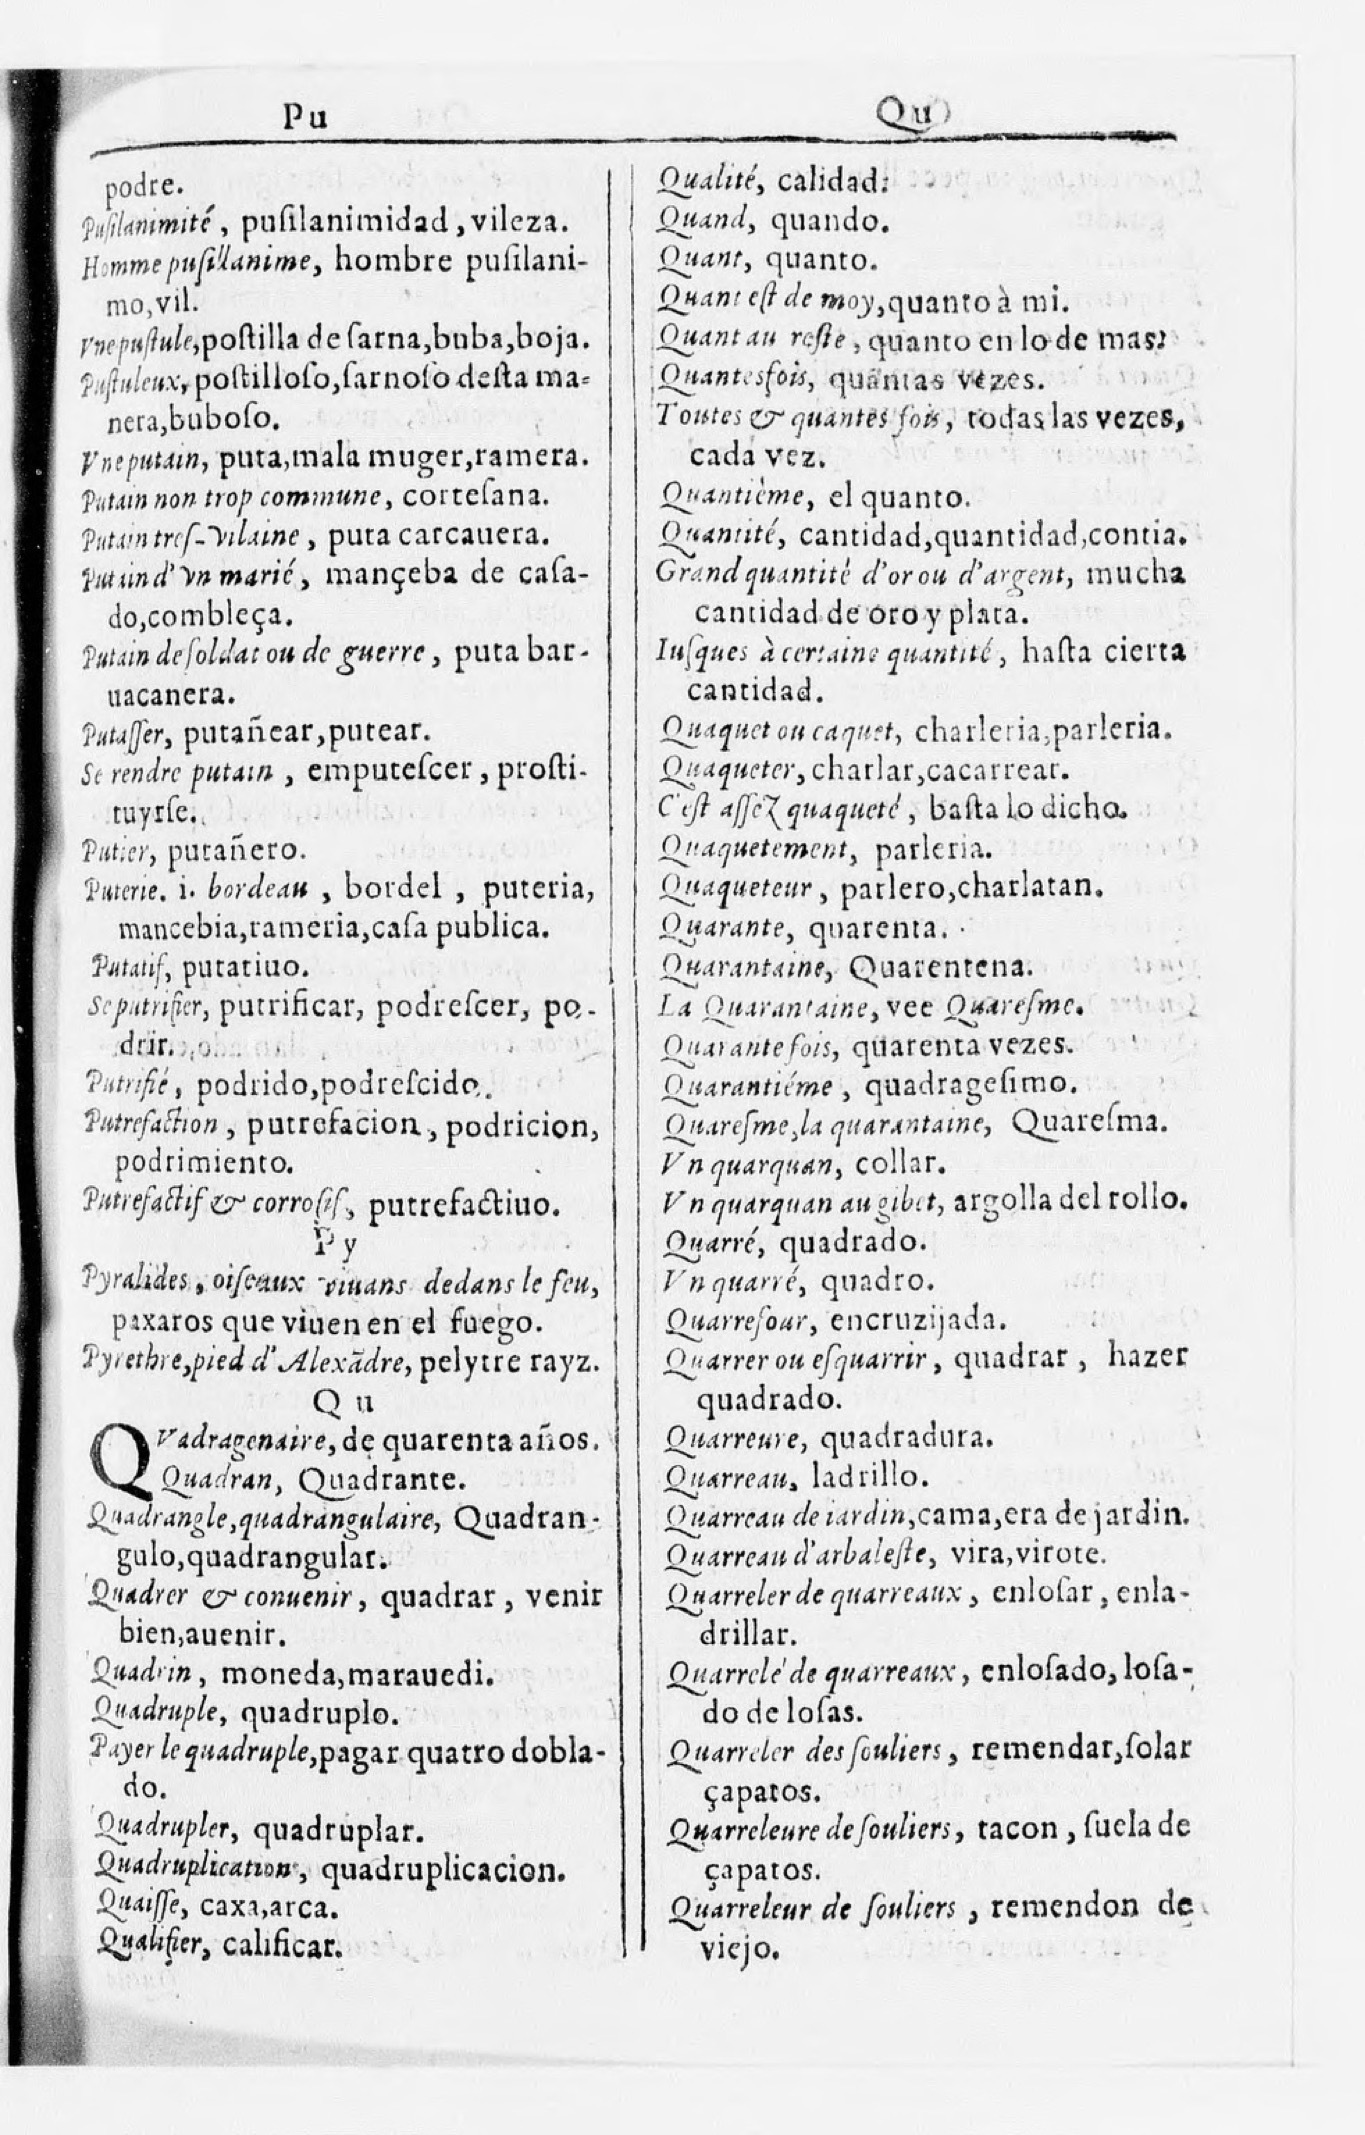 Pu
Qu
podre.
Puſilanimité, puſilanimidad, vileza.
Homme puſillanime, hombre puſilani-
mo, vil.
Vne puſtule, poſtilla de ſarna, buba, boja.
Puſtuleux, poſtilloſo, ſarnoſo deſta ma-
nera, buboſo.
Vne putain, puta, mala muger, ramera.
Putain non trop commune, corteſana.
Putain treſ-vilaine, puta carcauera.
Putain d'vn marié, mançeba de caſa-
do, combleça.
Putain de ſoldat ou de guerre, puta bar-
uacanera.
Putaſſer, putañear, putear.
Se rendre putain, emputeſcer, proſti-
tuyrſe.
Putier, putañero.
Puterie. i. bordeau, bordel, puteria,
mancebia, rameria, caſa publica.
Putatif, putatiuo.
Se putrifier, putrificar, podreſcer, po-
drir.
Putrifié, podrido, podreſcido.
Putrefaction, putrefacion, podricion,
podrimiento.
Putrefactif & corroſif, putrefactiuo.
Py
Pyralides, oiſeaux viuans dedans le feu,
paxaros que viuen en el fuego.
Pyrethre, pied d'Alexãdre, pelytre rayz.
Qu
QVadragenaire, de quarenta años.
Quadran, Quadrante.
Quadrangle, quadrangulaire, Quadran-
gulo, quadrangular.
Quadrer & conuenir, quadrar, venir
bien, auenir.
Quadrin, moneda, marauedi.
Quadruple, quadruplo.
Payer le quadruple, pagar quatro dobla-
do.
Quadrupler, quadruplar.
Quadruplication, quadruplicacion.
Quaiſſe, caxa, arca.
Qualifier, calificar.
Qualité, calidad.
Quand, quando.
Quant, quanto.
Quant eſt de moy, quanto à mi.
Quant au reſte, quanto en lo de mas.
Quantesfois, quantas vezes.
Toutes & quantes fois, todas las vezes,
cada vez.
Quantième, el quanto.
Quantité, cantidad, quantidad, contia.
Grand quantité d'or ou d'argent, mucha
cantidad de oro y plata.
Iuſques à certaine quantité, haſta cierta
cantidad.
Quaquet ou caquet, charleria, parleria.
Quaqueter, charlar, cacarrear.
C'eſt aſſez quaqueté, baſta lo dicho.
Quaquetement, parleria.
Quaqueteur, parlero, charlatan.
Quarante, quarenta.
Quarantaine, Quarentena.
La Quarantaine, vee Quareſme.
Quarante fois, quarenta vezes.
Quarantiéme, quadrageſimo.
Quareſme, la quarantaine, Quareſma.
Vn quarquan, collar.
Vn quarquan au gibet, argolla del rollo.
Quarré, quadrado.
Vn quarré, quadro.
Quarrefour, encruzijada.
Quarrer ou eſquarrir, quadrar, hazer
quadrado.
Quarreure, quadradura.
Quarreau, ladrillo.
Quarreau de iardin, cama, era de jardin.
Quarreau d'arbaleſte, vira, virote.
Quarreler de quarreaux, enloſar, enla-
drillar.
Quarrelé de quarreaux, enloſado, loſa-
do de loſas.
Quarreler des ſouliers, remendar, ſolar
çapatos.
Quarreleure de ſouliers, tacon, ſuela de
çapatos.
Quarreleur de ſouliers, remendon de
viejo.